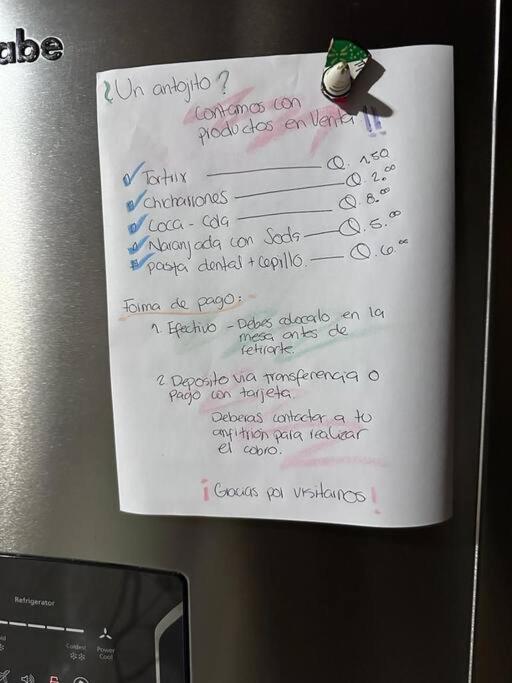 abe
¿Un antojito?
Contamos con
productos en Venta!!
Tortrix Q. 1.50
Chicharrones Q. 2.00
Coca-Cola Q. 8.00
Naranjada con Soda Q. 5.00
pasta dental + cepillo. Q. 6.00
Forma de pago:
1. Efectivo - Debes colocarlo en la
mesa antes de
retirarte.
2. Deposito via transferencia o
pago con tarjeta.
Deberas contactar a tu
anfitrión para realizar
el cobro.
¡Gracias por visitarnos!
Refrigerator
Coldest
Power
Cool